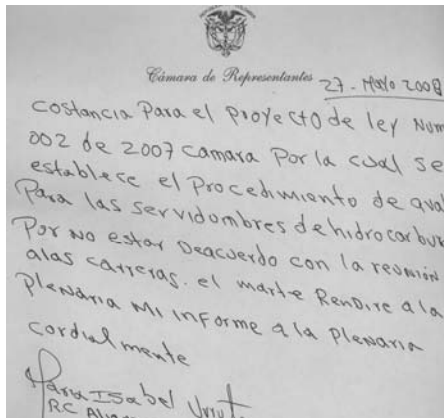 Cámara de Representantes
27-Mayo 2008
costancia Para el proyecto de ley Num
002 de 2007 camara Por la cual se
establese el Procedimiento de aval
Para las servidumbres de hidrocarbur
Por no estar Deacuerdo con la reunión
alas carreras. el marte Rendire a la
Plenaria mi informe a la Plenaria
cordialmente
Maria Isabel Urrut
RC